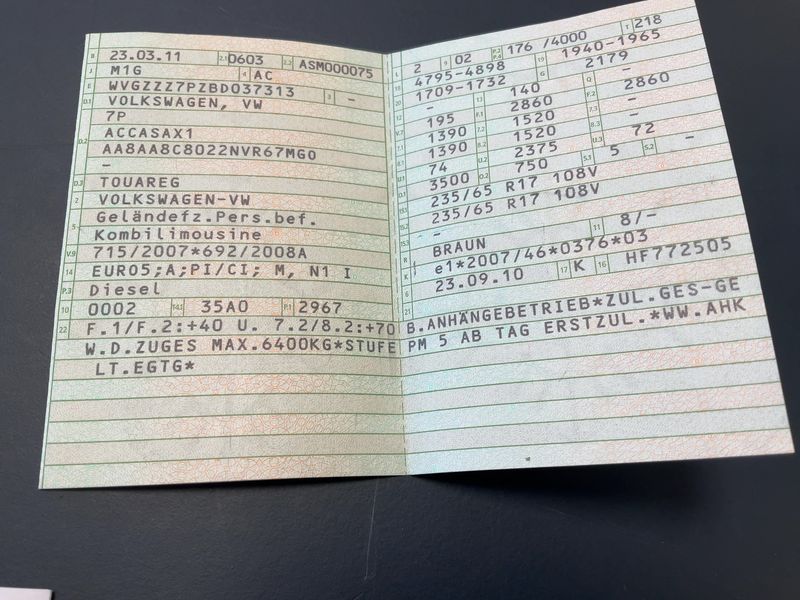 B 23.03.11 2.1 0603 2.2 ASM000075
J M1G 4 AC
E WVGZZZ7PZBD037313 3 -
D.1 VOLKSWAGEN, VW
7P
D.2 ACCASAX1
AA8AA8C8022NVR67MG0
-
D.3 TOUAREG
2 VOLKSWAGEN-VW
5 Geländefz.Pers.bef.
Kombilimousine
V.9 715/2007*692/2008A
14 EURO5;A;PI/CI; M, N1 I
P.3 Diesel
10 0002 14.1 35A0 P.1 2967
22 F.1/F.2:+40 U. 7.2/8.2:+70
W.D.ZUGES MAX.6400KG*STUFE
LT.EGTG*
L 2 9 02 P.2 P.4 176 /4000 T 218
18 4795-4898 19 1940-1965
20 1709-1732 G 2179
12 - 13 140 Q -
V.7 195 F.1 2860 F.2 2860
7.1 1390 7.2 1520 7.3 -
8.1 1390 8.2 1520 8.3 -
U.1 74 U.2 2375 U.3 72
O.1 3500 O.2 750 S.1 5 S.2 -
15.1 235/65 R17 108V
15.2 235/65 R17 108V
15.3 -
R BRAUN 11 8/-
K e1*2007/46*0376*03
6 23.09.10 17 K 16 HF772505
21
B.ANHÄNGEBETRIEB*ZUL.GES-GE
PM 5 AB TAG ERSTZUL.*WW.AHK